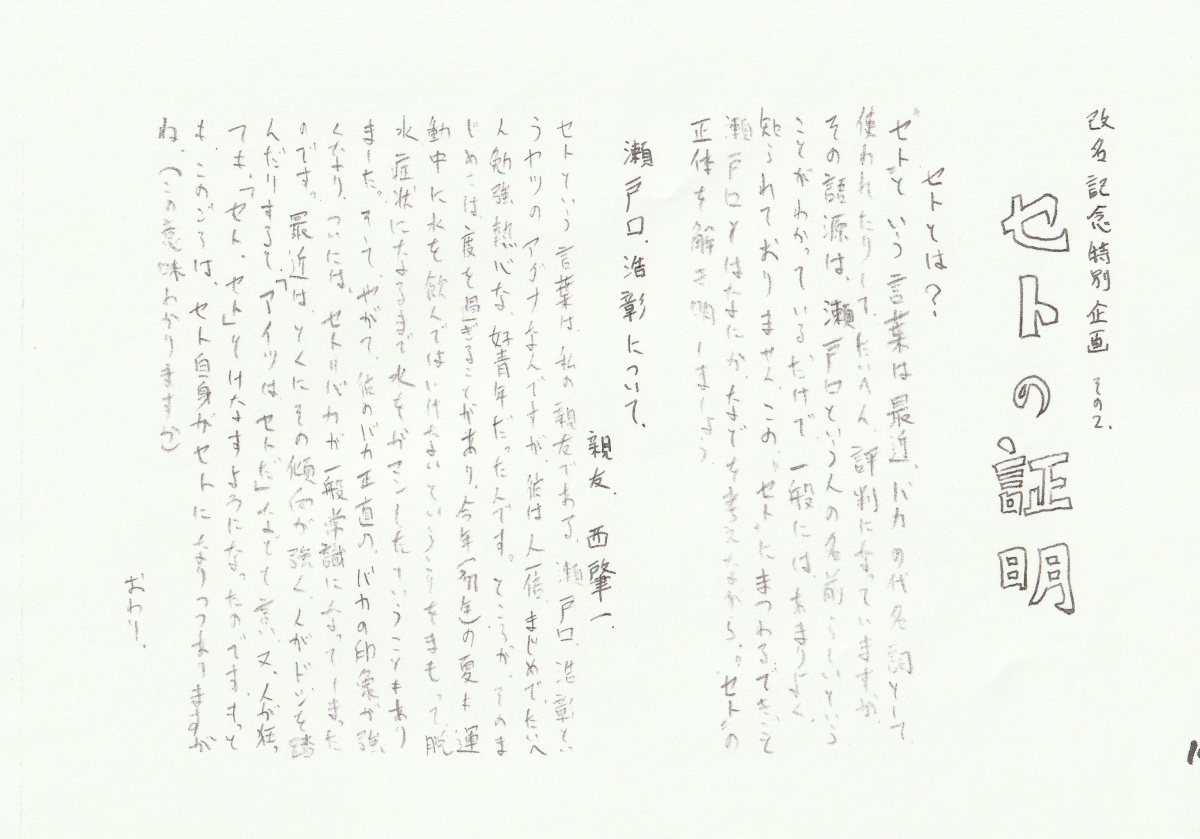 改名記念特別企画 その2.
セトの証明
セトとは?
"セト"という言葉は最近、バカの代名詞として、
使われたりして、たいへん、評判になっていますが、
その語源は、瀬戸口という人の名前らしいという
ことがわかっているだけで、一般には、あまりよく、
知られておりません。この、"セト"にまつわるできごと
瀬戸口とはなにか、などを考えながら、"セト"の
正体を解き明しましょう。
瀬戸口、浩彰について、
親友、西肇一、
セトという言葉は、私の親友である、瀬戸口、浩彰とい
うヤツのアダナなんですが、彼は人一倍、まじめで、たいへ
ん勉強熱心な、好青年だったんです。ところが、そのま
じめさは、度を過ぎることがあり、今年(初色)の夏も運
動中に水を飲んではいけないということをまもって脱
水症状になるまで水をガマンしたということもあり
ました。そして、やがて、彼のバカ正直の、バカの印象が強
くなり、ついには、セト=バカが一般常識になってしまった
のです。最近は、とくにその傾向が強く、人がドジを踏
んだりすると、「アイツは、セトだ」なんて言い、又、人が狂っ
ても、「セト、セト」とけなすようになったのです。もっと
も、このごろは、セト自身がセトになりつつありますが
ね。(この意味わかりますか)
おわり.